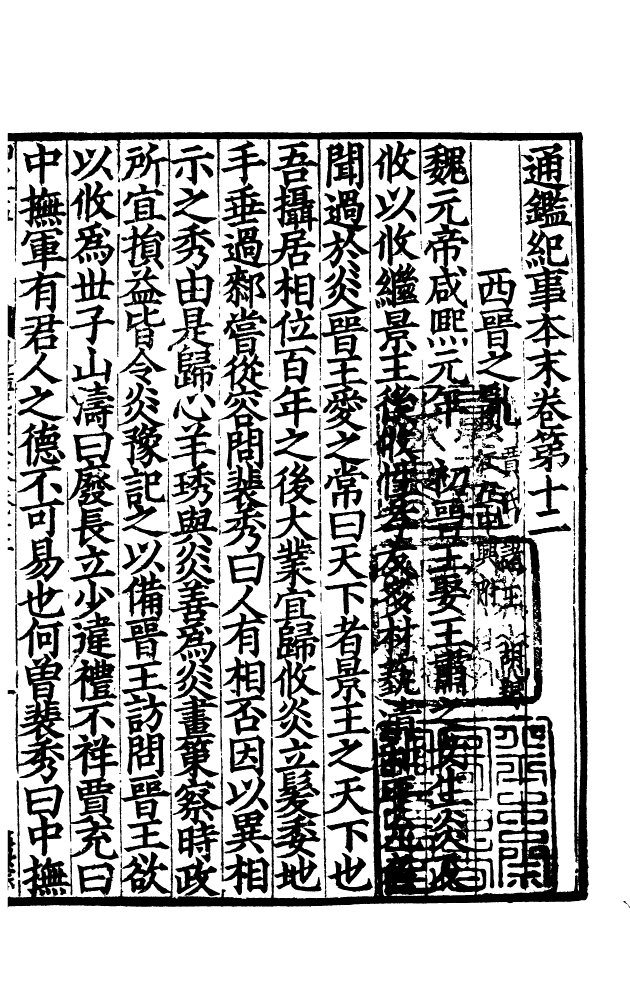 通鑑紀事本末卷第十二
西晉之亂
魏元帝咸熙元年初晉王娶王肅之女生炎及
攸以攸繼景王後攸性孝友多材藝清和平允名
聞過於炎晉王愛之常曰天下者景王之天下也
吾攝居相位百年之後大業宜歸攸炎立髮委地
手垂過𰯌嘗從容問裴秀曰人有相否因以異相
示之秀由是歸心羊琇與炎善為炎畫策察時政
所宜損益皆令炎豫記之以備晉王訪問晉王欲
以攸為世子山濤曰廢長立少違禮不祥賈充曰
中撫軍有君人之德不可易也何曽裴秀曰中撫